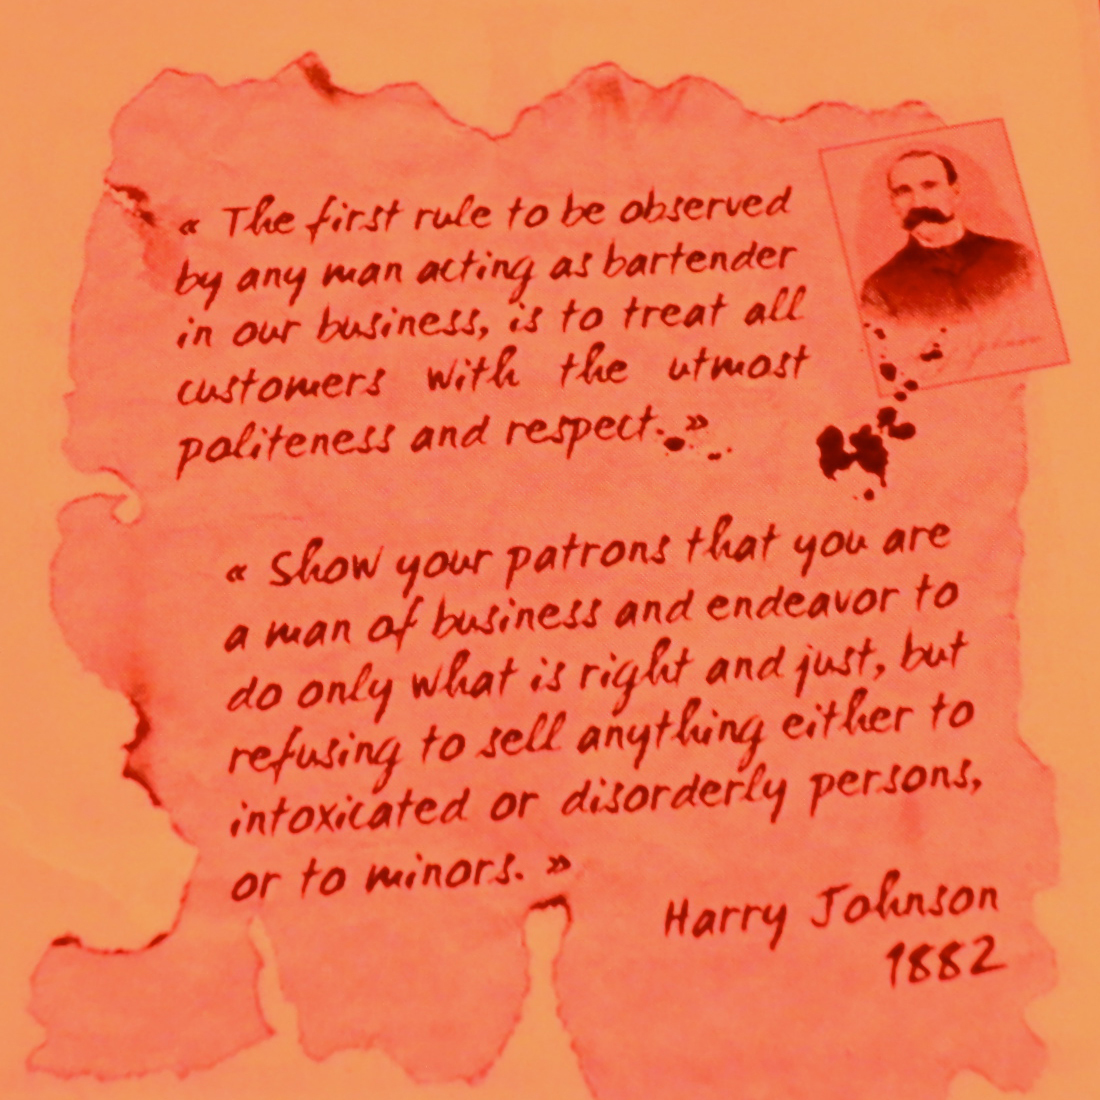 « The first rule to be observed
by any man acting as bartender
in our business, is to treat all
customers with the utmost
politeness and respect. »
« Show your patrons that you are
a man of business and endeavor to
do only what is right and just, but
refusing to sell anything either to
intoxicated or disorderly persons,
or to minors. »
Harry Johnson
1882